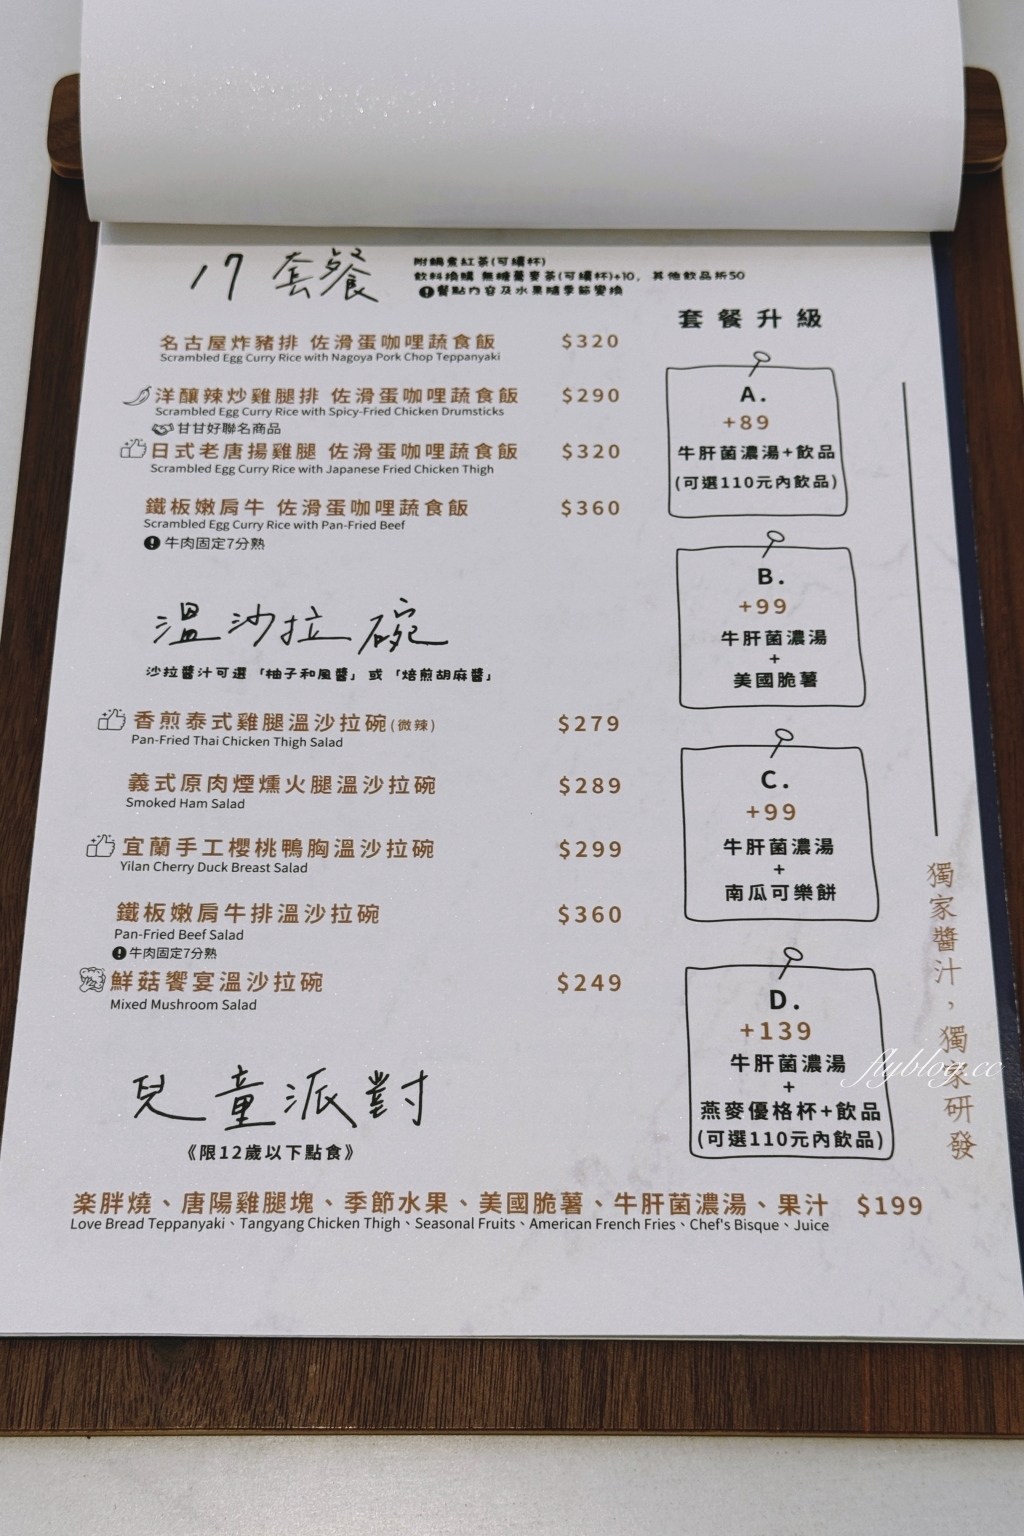 17 套餐
附鍋煮紅茶(可續杯)
飲料換購 無糖蕎麥茶(可續杯)+10, 其他飲品折50
!餐點內容及水果隨季節變換
名古屋炸豬排 佐滑蛋咖哩蔬食飯 $320
Scrambled Egg Curry Rice with Nagoya Pork Chop Teppanyaki
洋釀辣炒雞腿排 佐滑蛋咖哩蔬食飯 $290
Scrambled Egg Curry Rice with Spicy-Fried Chicken Drumsticks
甘甘好聯名商品
日式老唐揚雞腿 佐滑蛋咖哩蔬食飯 $320
Scrambled Egg Curry Rice with Japanese Fried Chicken Thigh
鐵板嫩肩牛 佐滑蛋咖哩蔬食飯 $360
Scrambled Egg Curry Rice with Pan-Fried Beef
!牛肉固定7分熟
溫沙拉碗
沙拉醬汁可選「柚子和風醬」或「焙煎胡麻醬」
香煎泰式雞腿溫沙拉碗(微辣) $279
Pan-Fried Thai Chicken Thigh Salad
義式原肉煙燻火腿溫沙拉碗 $289
Smoked Ham Salad
宜蘭手工櫻桃鴨胸溫沙拉碗 $299
Yilan Cherry Duck Breast Salad
鐵板嫩肩牛排溫沙拉碗 $360
Pan-Fried Beef Salad
!牛肉固定7分熟
鮮菇饗宴溫沙拉碗 $249
Mixed Mushroom Salad
兒童派對
《限12歲以下點食》
楽胖燒、唐陽雞腿塊、季節水果、美國脆薯、牛肝菌濃湯、果汁 $199
Love Bread Teppanyaki、Tangyang Chicken Thigh、Seasonal Fruits、American French Fries、Chef's Bisque、Juice
套餐升級
A.
+89
牛肝菌濃湯+飲品
(可選110元內飲品)
B.
+99
牛肝菌濃湯
+
美國脆薯
C.
+99
牛肝菌濃湯
+
南瓜可樂餅
D.
+139
牛肝菌濃湯
+
燕麥優格杯+飲品
(可選110元內飲品)
獨家醬汁，獨家研發
flyblog.cc